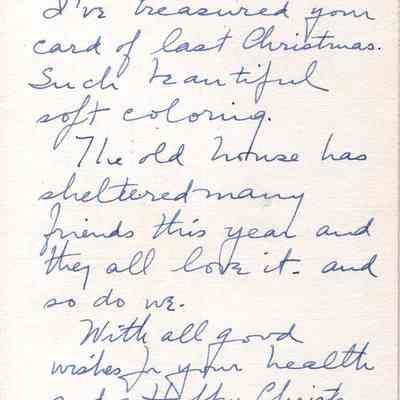 I've treasured your
card of last Christmas.
Such beautiful
soft coloring.
The old house has
sheltered many
friends this year and
they all love it - and
so do we.
With all good
wishes for your health
and a Happy Christ